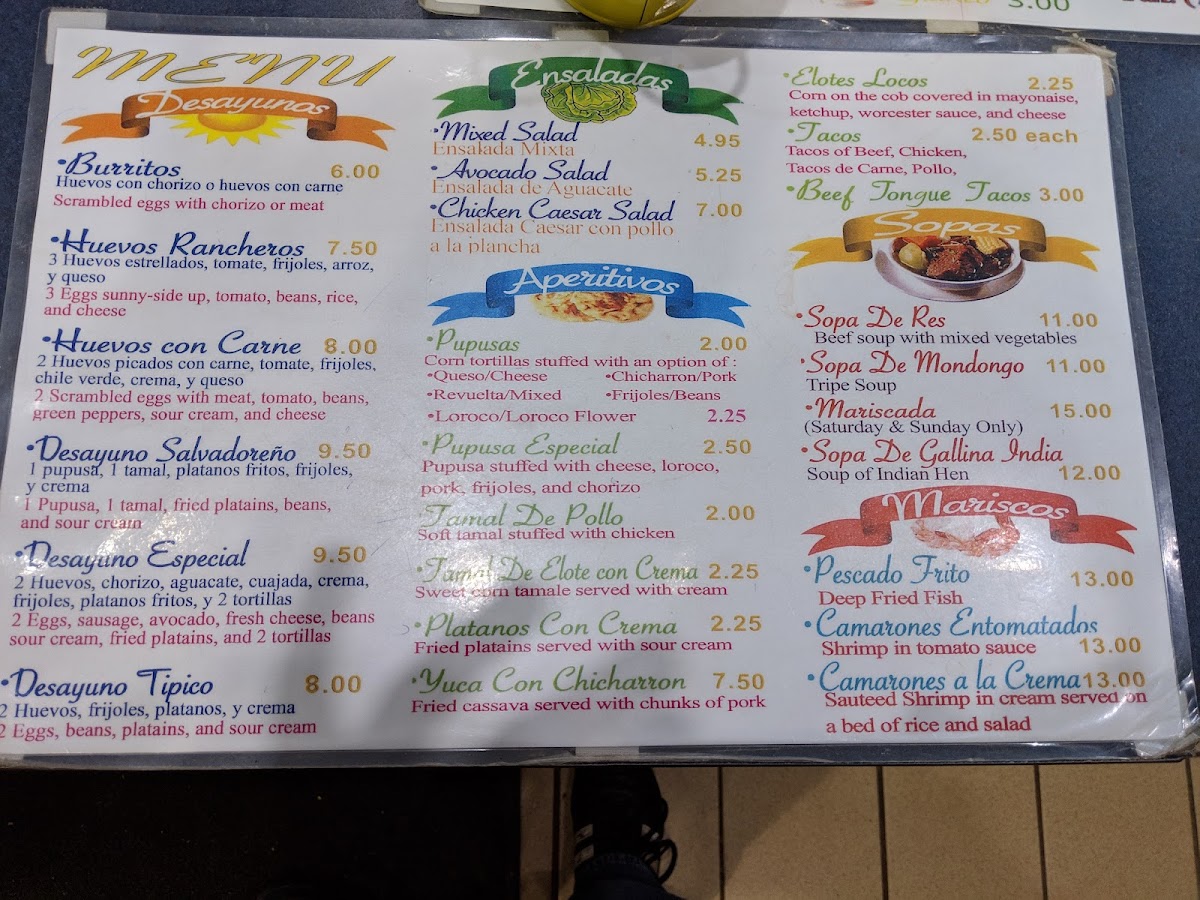 MENU
Desayunos
•Burritos 6.00
Huevos con chorizo o huevos con carne
Scrambled eggs with chorizo or meat
•Huevos Rancheros 7.50
3 Huevos estrellados, tomate, frijoles, arroz,
y queso
3 Eggs sunny-side up, tomato, beans, rice,
and cheese
•Huevos con Carne 8.00
2 Huevos picados con carne, tomate, frijoles,
chile verde, crema, y queso
2 Scrambled eggs with meat, tomato, beans,
green peppers, sour cream, and cheese
•Desayuno Salvadoreño 9.50
1 pupusa, 1 tamal, platanos fritos, frijoles,
y crema
1 Pupusa, 1 tamal, fried platains, beans,
and sour cream
•Desayuno Especial 9.50
2 Huevos, chorizo, aguacate, cuajada, crema,
frijoles, platanos fritos, y 2 tortillas
2 Eggs, sausage, avocado, fresh cheese, beans
sour cream, fried platains, and 2 tortillas
•Desayuno Tipico 8.00
2 Huevos, frijoles, platanos, y crema
2 Eggs, beans, platains, and sour cream
Ensaladas
•Mixed Salad 4.95
Ensalada Mixta
•Avocado Salad 5.25
Ensalada de Aguacate
•Chicken Caesar Salad 7.00
Ensalada Caesar con pollo
a la plancha
Aperitivos
•Pupusas 2.00
Corn tortillas stuffed with an option of :
•Queso/Cheese •Chicharron/Pork
•Revuelta/Mixed •Frijoles/Beans
•Loroco/Loroco Flower 2.25
•Pupusa Especial 2.50
Pupusa stuffed with cheese, loroco,
pork, frijoles, and chorizo
•Tamal De Pollo 2.00
Soft tamal stuffed with chicken
•Tamal De Elote con Crema 2.25
Sweet corn tamale served with cream
•Platanos Con Crema 2.25
Fried platains served with sour cream
•Yuca Con Chicharron 7.50
Fried cassava served with chunks of pork
3.00
•Elotes Locos 2.25
Corn on the cob covered in mayonaise,
ketchup, worcester sauce, and cheese
•Tacos 2.50 each
Tacos of Beef, Chicken,
Tacos de Carne, Pollo,
•Beef Tongue Tacos 3.00
Sopas
•Sopa De Res 11.00
Beef soup with mixed vegetables
•Sopa De Mondongo 11.00
Tripe Soup
•Mariscada 15.00
(Saturday & Sunday Only)
•Sopa De Gallina India
Soup of Indian Hen 12.00
Mariscos
•Pescado Frito 13.00
Deep Fried Fish
•Camarones Entomatados
Shrimp in tomato sauce 13.00
•Camarones a la Crema 13.00
Sauteed Shrimp in cream served on
a bed of rice and salad